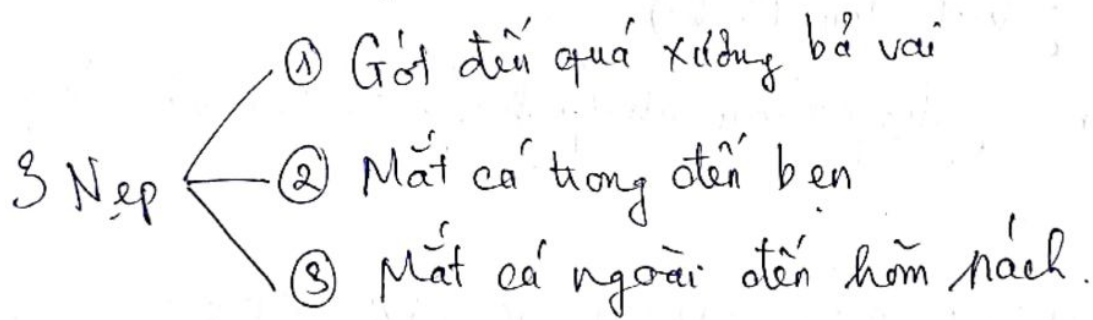 ① Gót đến quá xướng bả vai
3 Nẹp
② Mắt cá trong đến bẹn
③ Mắt cá ngoài đến hõm nách.